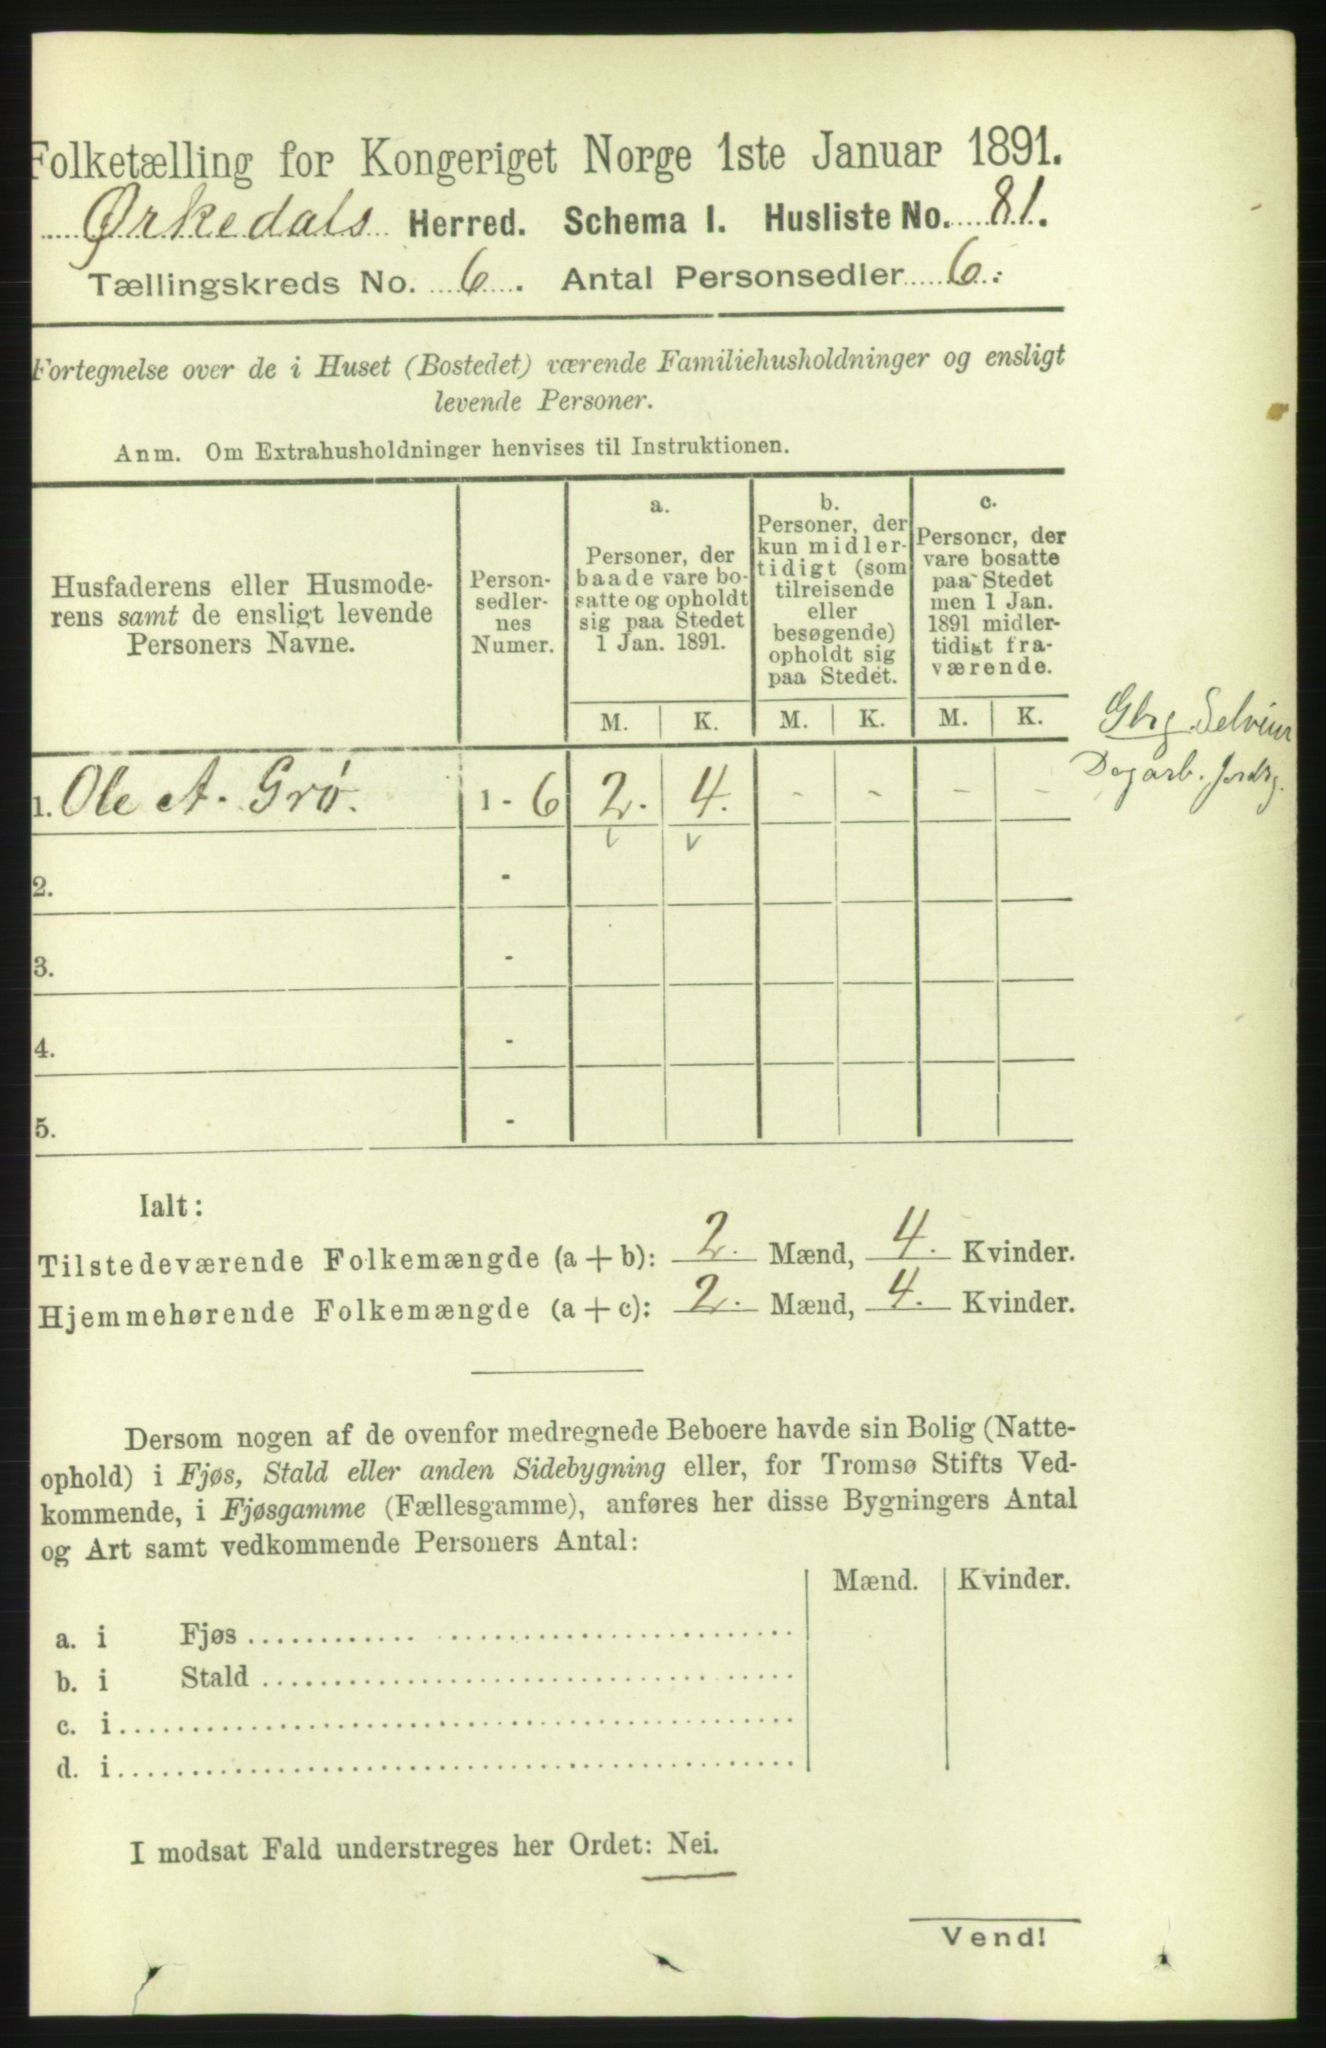 Folketælling for Kongeriget Norge 1ste Januar 1891.
Ørkedals Herred. Schema I. Husliste No. 81.
Tællingskreds No. 6. Antal Personsedler 6.
Fortegnelse over de i Huset (Bostedet) værende Familiehusholdninger og ensligt
levende Personer.
Anm. Om Extrahusholdninger henvises til Instruktionen.
Husfaderens eller Husmode-
rens samt de ensligt levende
Personers Navne.
Person-
sedler-
nes
Numer.
a.
Personer, der
baade vare bo-
satte og opholdt
sig paa Stedet
1 Jan. 1891.
b.
Personer, der
kun midler-
tidigt (som
tilreisende
eller
besøgende)
opholdt sig
paa Stedet.
c.
Personer, der
vare bosatte
paa Stedet
men 1 Jan.
1891 midler-
tidigt fra-
værende.
M. K. M. K. M. K.
Gbrg.
Dagarb.
1. Ole A. Grø. 1 - 6 2. 4. - - - -
2. -
3. -
4. -
5. -
Ialt:
Tilstedeværende Folkemængde (a + b): 2. Mænd, 4. Kvinder.
Hjemmehørende Folkemængde (a + c): 2. Mænd, 4. Kvinder.
Dersom nogen af de ovenfor medregnede Beboere havde sin Bolig (Natte-
ophold) i Fjøs, Stald eller anden Sidebygning eller, for Tromsø Stifts Ved-
kommende, i Fjøsgamme (Fællesgamme), anføres her disse Bygningers Antal
og Art samt vedkommende Personers Antal:
Mænd. Kvinder.
a. i Fjøs
b. i Stald
c. i
d. i
I modsat Fald understreges her Ordet: Nei.
Vend!